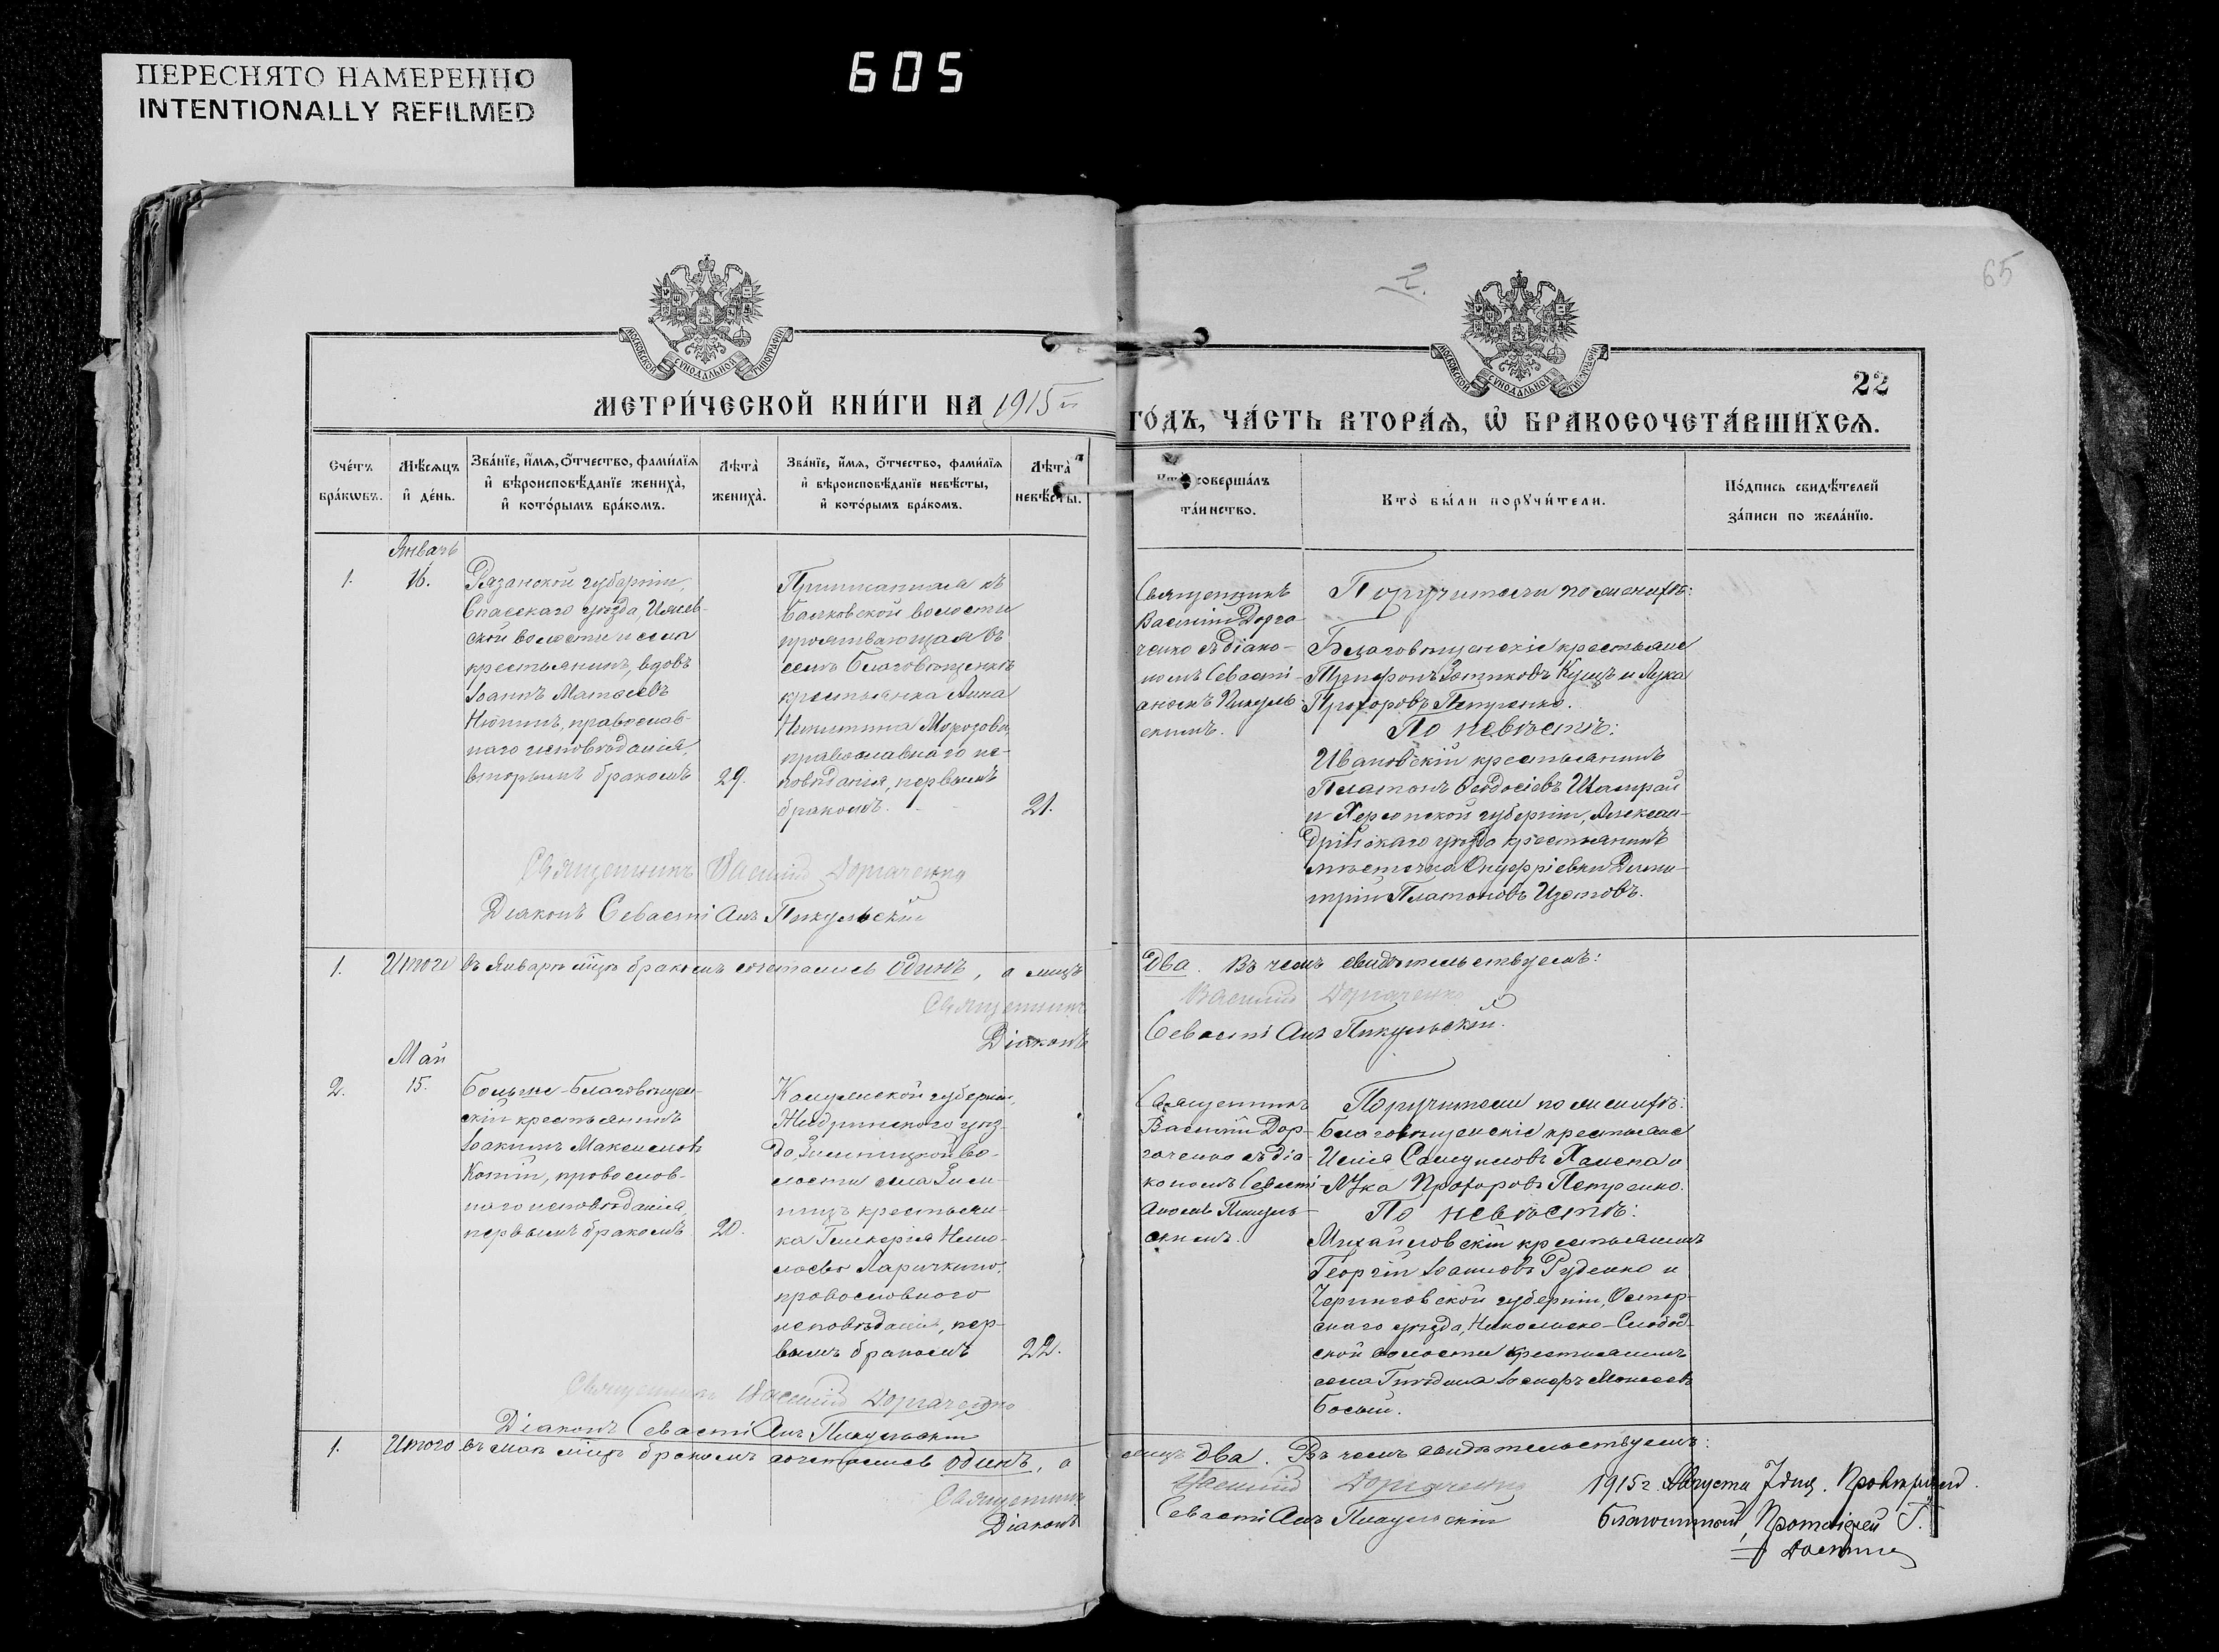 ПЕРЕСНЯТО НАМЕРЕННО
INTENTIONALLY REFILMED
605
65
2.
МОСКОВСКОЙ СѴНОДАЛЬНОЙ ТИПОГРАФІИ
МОСКОВСКОЙ СѴНОДАЛЬНОЙ ТИПОГРАФІИ
22
МЕТРИ́ЧЕСКОЙ КНИ́ГИ НА 1915й
ГО́ДЪ, ЧА́СТЬ ВТОРА́Ѧ, Ѽ БРАКОСОЧЕТА́ВШИХСѦ.
Сче́тъ бра́кѡвъ.
Мѣ́сѧцъ и҆ де́нь.
Зва́нїе, и҆́мѧ, ѻ҆́тчество, фами́лїѧ
и҆ вѣроисповѣ́данїе жениха̀,
и҆ кото́рымъ бра́комъ.
Лѣ́та̀ жениха̀.
Зва́нїе, и҆́мѧ, ѻ҆́тчество, фами́лїѧ
и҆ вѣроисповѣ́данїе невѣ́сты,
и҆ кото́рымъ бра́комъ.
Лѣ́та̀ невѣ́сты.
Кто̀ соверша́лъ
та́инство.
Кто̀ бы́ли порꙋчи́тели.
По́дпись свидѣ́телей
за́писи по жела́нїю.
Январь
1.
16.
Рязанской губерніи,
Спасскаго уѣзда, Ижев-
ской волости и села
крестьянинъ, вдовъ
Іоаннъ Матѳеевъ
Нюнинъ, православ-
наго исповѣданія,
вторымъ бракомъ
29.
Приписанная къ
Балковской волости
проживающая въ
селѣ Благовѣщенкѣ
крестьянка Анна
Никитина Морозова
православнаго ис-
повѣданія, первымъ
бракомъ.
21.
Священникъ
Василій Дорга-
ченко съ діако-
номъ Севасті-
аномъ Пикуль-
скимъ.
Поручители по женихѣ:
Благовѣщенскіе крестьяне
Трифонъ Зотиковъ Куцъ и Лука
Прохоровъ Петренко.
По невѣстѣ:
Ивановскій крестьянинъ
Платонъ Ѳеодосіевъ Шамрай
и Херсонской губерніи, Алексан-
дрійскаго уѣзда крестьянинъ
мѣстечка Онуфріевки Дими-
трій Платоновъ Изотовъ.
Священникъ Василій Доргаченко
Діаконъ Севастіанъ Пикульскій
1. Итого въ Январѣ мцѣ бракомъ сочетались одинъ, а лицъ
два. Въ чемъ свидѣтельствуемъ:
Священникъ Василій Доргаченко
Діаконъ Севастіанъ Пикульскій.
Май
2.
15.
Больше-Благовѣщен-
скій крестьянинъ
Іоакимъ Максимовъ
православ-
наго исповѣданія,
первымъ бракомъ
20.
Калужской губерніи,
Жиздринскаго уѣз-
да, Зимницкой во-
лости села Зим-
ницъ крестьян-
ка Гликерія
Ларичкина,
православнаго
исповѣданія, пер-
вымъ бракомъ
22.
Священникъ
Василій Дор-
гаченко съ діа-
кономъ Севасті-
аномъ Пикуль-
скимъ.
Поручители по женихѣ:
Благовѣщенскіе крестьяне
Илія Самуиловъ и
Лука Прохоровъ Петренко.
По невѣстѣ:
Михайловскій крестьянинъ
Георгій Іоанновъ Руденко и
Черниговской губерніи, Остер-
скаго уѣзда, Никольско-Слобод-
ской волости крестьянинъ
села Гнѣдина Моисеевъ
Босый.
Священникъ Василій Доргаченко
Діаконъ Севастіанъ Пикульскій
1. Итого въ маѣ мцѣ бракомъ сочетались одинъ, а
лицъ два. Въ чемъ свидѣтельствуемъ:
Священникъ Василій Доргаченко
Діаконъ Севастіанъ Пикульскій
1915 г. Августа 7 дня.
Благочинный, Протоіерей Г.